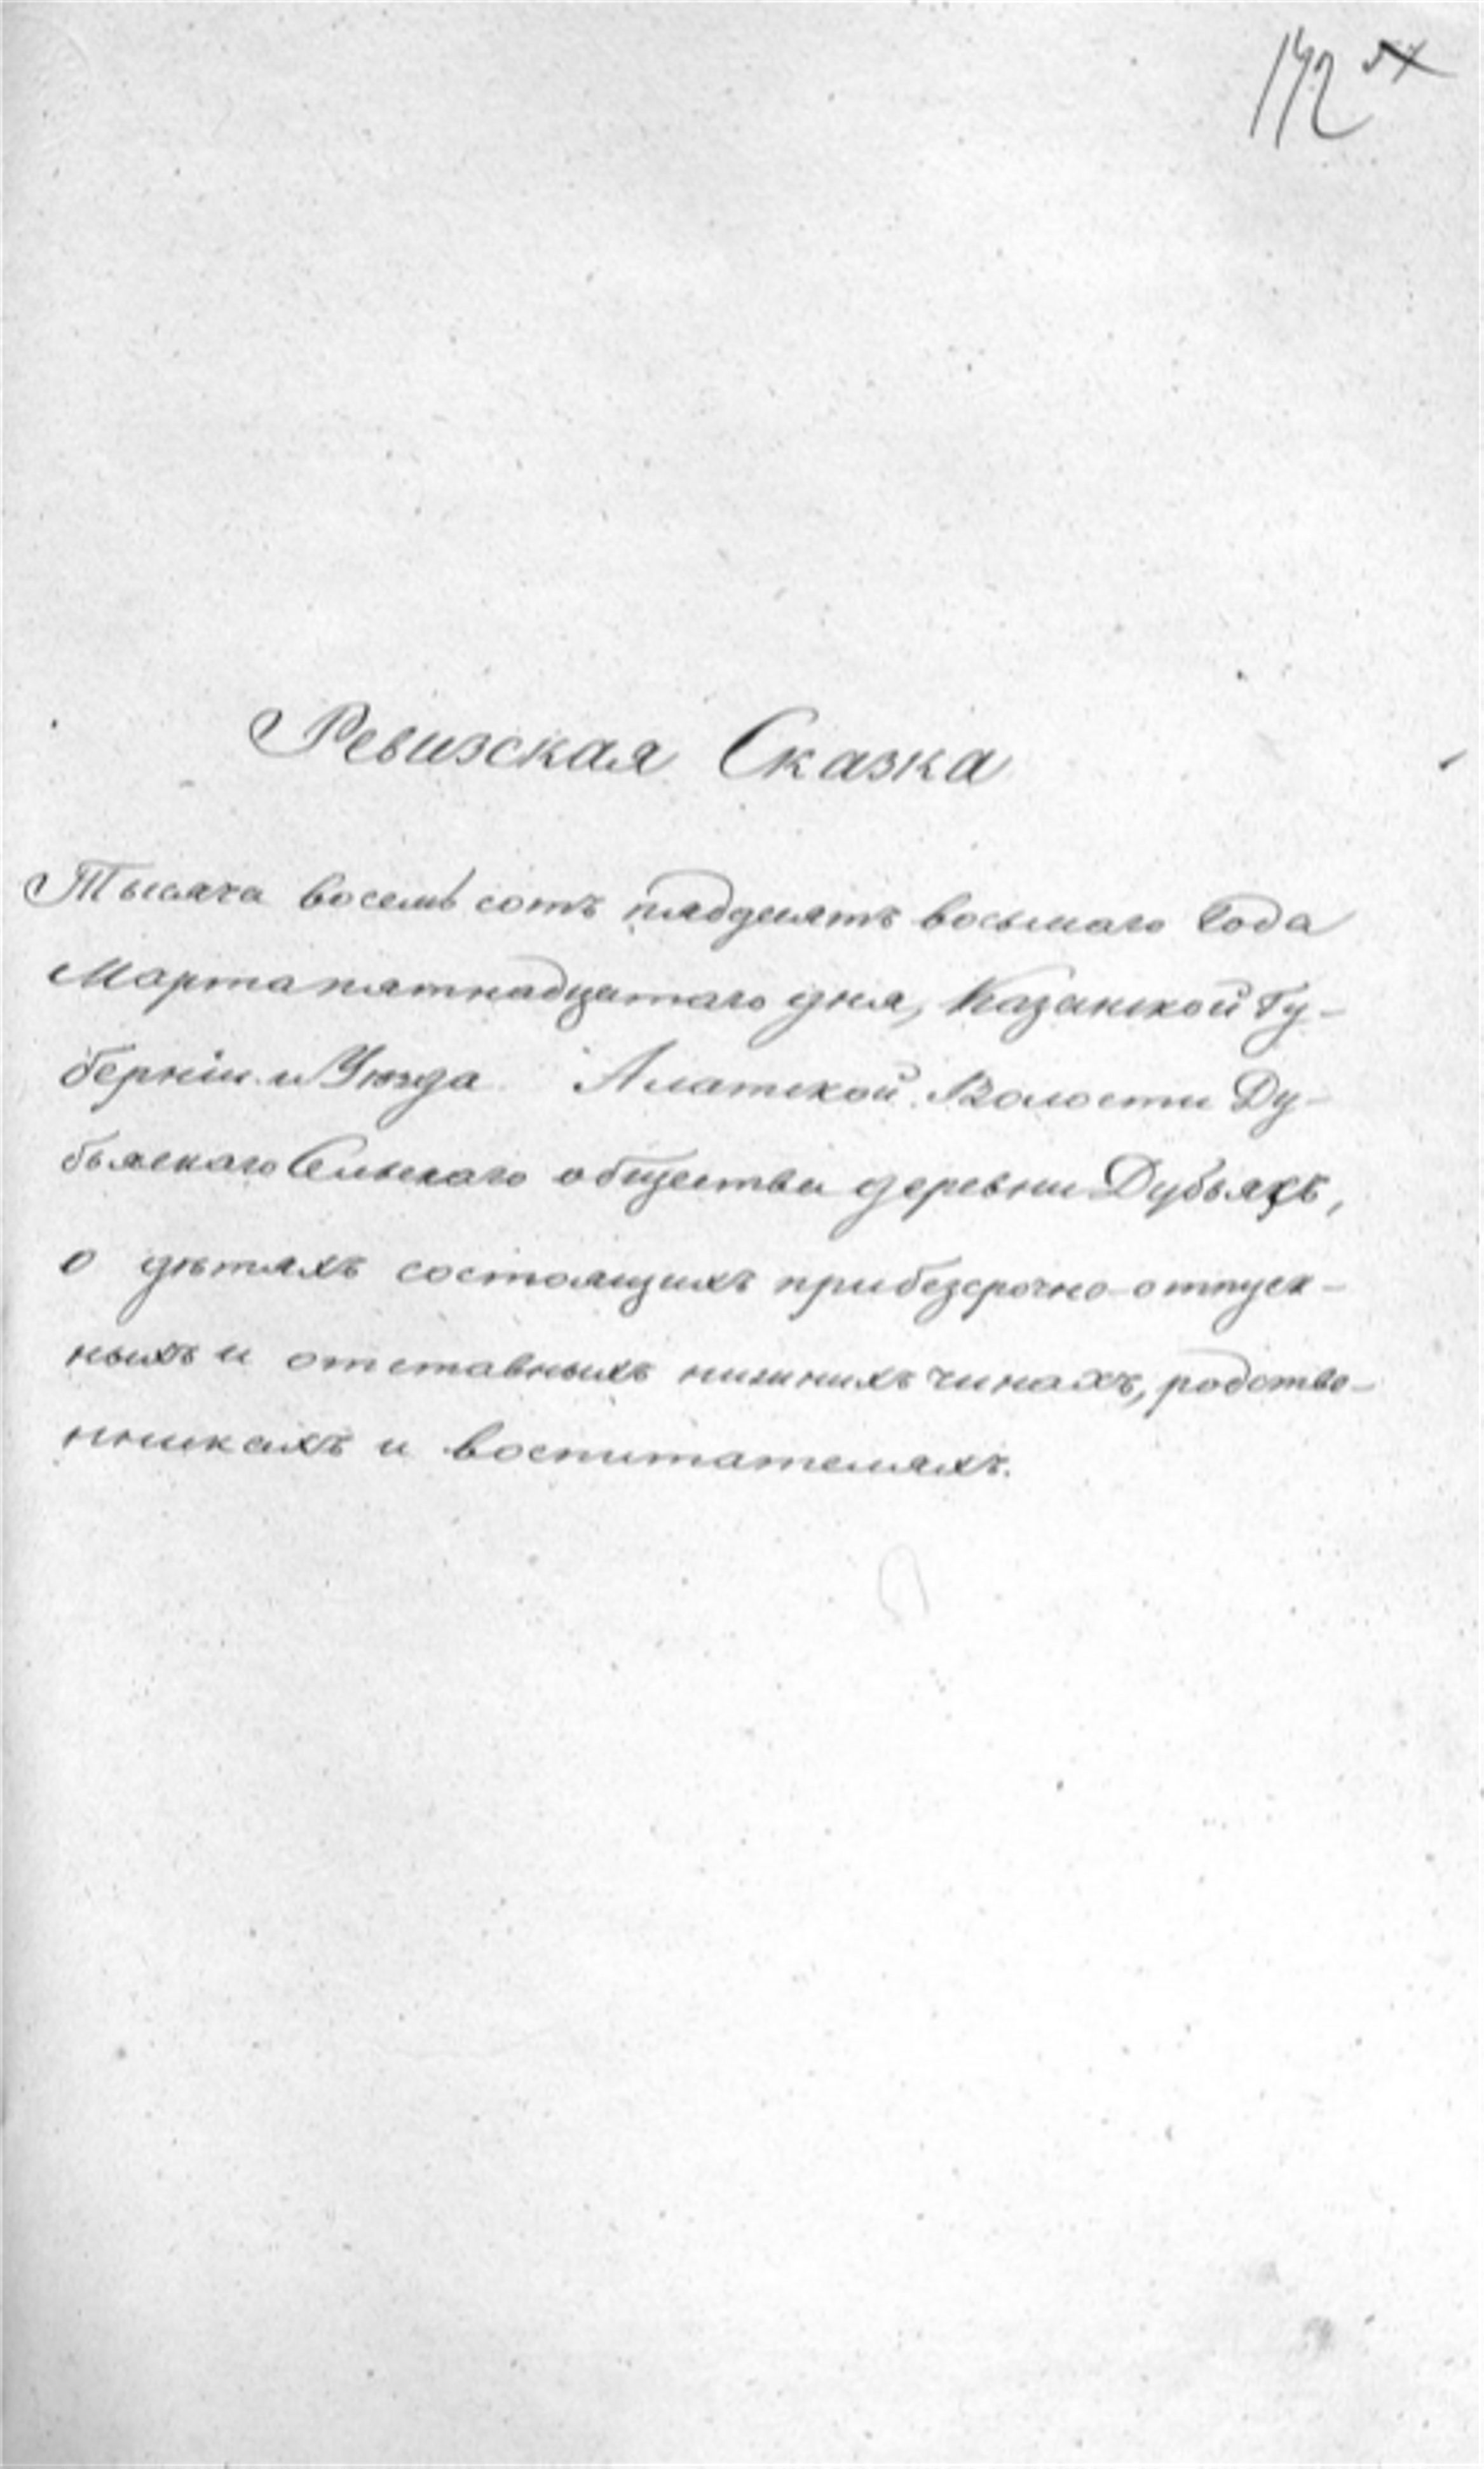 142
Ревизская Сказка
Тысяча восемь сотъ пяддесятъ восьмаго Года
Марта пятнадцатаго дня, Казанской Гу-
берніи и Уѣзда Алатской Волости Ду-
бьяскаго Сельскаго общества деревни Дубьясъ,
о дѣтяхъ состоящихъ при безсрочно-отпуск-
ныхъ и отставныхъ нижнихъ чинахъ, родстве-
нникахъ и воспитателяхъ.